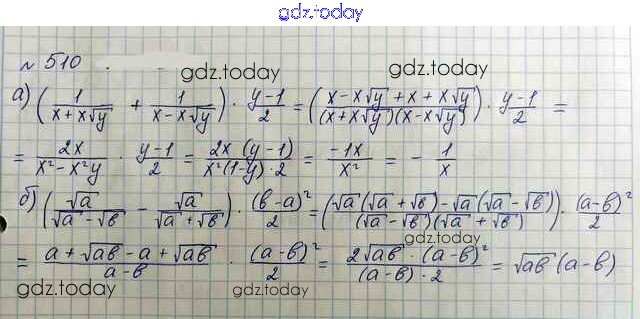 gdz.today
№ 510
gdz.today gdz.today
а) (1/(x+x√y) + 1/(x-x√y)) · (y-1)/2 = ((x-x√y+x+x√y)/((x+x√y)(x-x√y))) · (y-1)/2 =
= 2x/(x²-x²y) · (y-1)/2 = 2x(y-1)/(x²(1-y)·2) = -1x/x² = - 1/x
б) (√a/(√a-√b) - √a/(√a+√b)) · (b-a)²/2 = ((√a(√a+√b)-√a(√a-√b))/((√a-√b)(√a+√b))) · (a-b)²/2
gdz.today
= (a+√ab-a+√ab)/(a-b) · (a-b)²/2 = 2√ab·(a-b)²/((a-b)·2) = √ab(a-b)
gdz.today gdz.today gdz.today